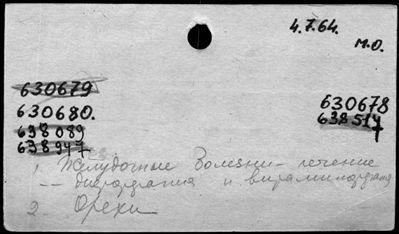 4.7.64.
м.о.
630679
630680.
638089
638947
630678
638517
1. Желудочные болезни - лечение
-- диетотерапия и витаминотерапия
2. Орехи